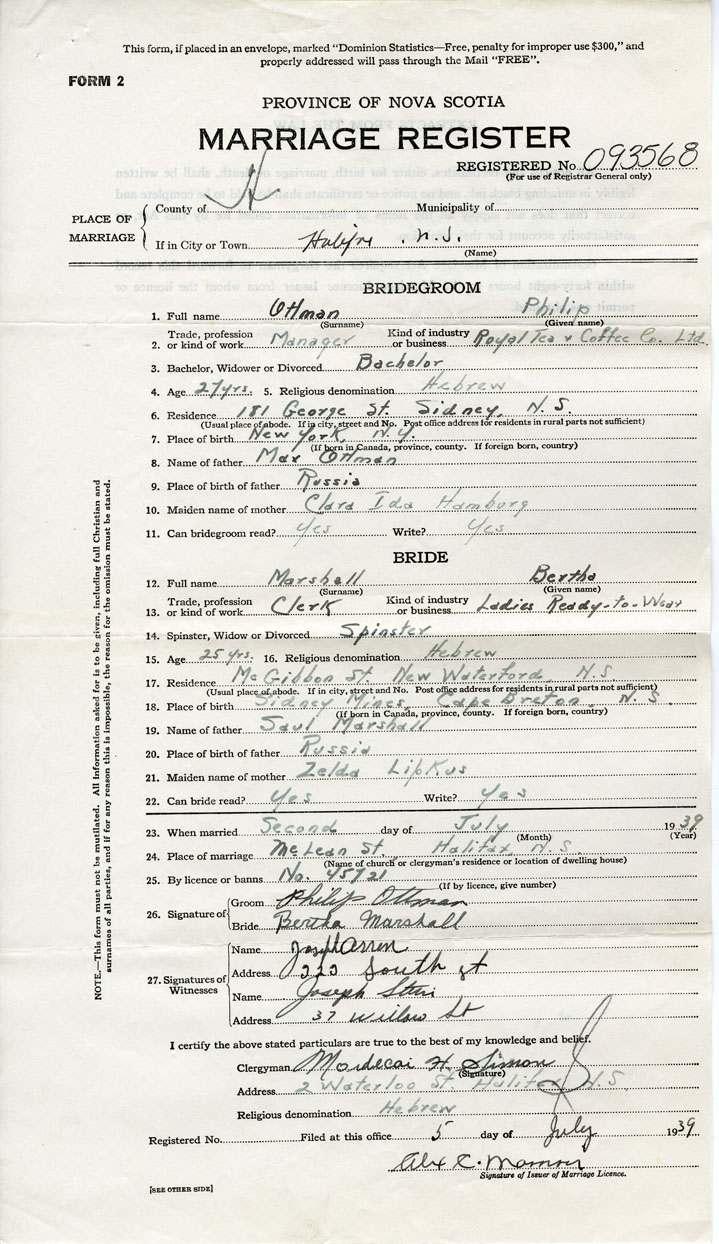 This form, if placed in an envelope, marked "Dominion Statistics—Free, penalty for improper use $300," and
properly addressed will pass through the Mail "FREE".
FORM 2
PROVINCE OF NOVA SCOTIA
MARRIAGE REGISTER
REGISTERED No. 093568
(For use of Registrar General only)
PLACE OF MARRIAGE
County of H Municipality of
If in City or Town Halifax . N.S.
(Name)
BRIDEGROOM
1. Full name Ottman Philip
(Surname) (Given name)
2. Trade, profession or kind of work Manager Kind of industry or business Royal Tea & Coffee Co. Ltd.
3. Bachelor, Widower or Divorced Bachelor
4. Age 27 yrs. 5. Religious denomination Hebrew
6. Residence 181 George St. Sidney, N.S.
(Usual place of abode. If in city, street and No. Post office address for residents in rural parts not sufficient)
7. Place of birth New York N.Y.
(If born in Canada, province, county. If foreign born, country)
8. Name of father Max Ottman
9. Place of birth of father Russia
10. Maiden name of mother Clara Ida Hamburg
11. Can bridegroom read? Yes Write? Yes
BRIDE
12. Full name Marshall Bertha
(Surname) (Given name)
13. Trade, profession or kind of work Clerk Kind of industry or business Ladies Ready-to-Wear
14. Spinster, Widow or Divorced Spinster
15. Age 25 yrs. 16. Religious denomination Hebrew
17. Residence McGibbon St New Waterford, N.S
(Usual place of abode. If in city, street and No. Post office address for residents in rural parts not sufficient)
18. Place of birth Sidney Mines, Cape Breton, N.S.
(If born in Canada, province, county. If foreign born, country)
19. Name of father Saul Marshall
20. Place of birth of father Russia
21. Maiden name of mother Zelda Lipkus
22. Can bride read? Yes Write? Yes
23. When married Second day of July 1939
(Month) (Year)
24. Place of marriage McLean St, Halifax, N.S.
(Name of church or clergyman's residence or location of dwelling house)
25. By licence or banns No. 45721
(If by licence, give number)
26. Signature of
Groom Philip Ottman
Bride Bertha Marshall
27. Signatures of Witnesses
Name Joseph Arren
Address 223 South st
Name Joseph
Address 37 Willow St
I certify the above stated particulars are true to the best of my knowledge and belief.
Clergyman Mordecai H. Simon
(Signature)
Address 2 Waterloo St. Halifax N.S.
Religious denomination Hebrew
Registered No. Filed at this office 5 day of July 1939
Alex C.
Signature of Issuer of Marriage Licence.
[SEE OTHER SIDE]
NOTE.—This form must not be mutilated. All information asked for is to be given, including full Christian and
surnames of all parties, and if for any reason this is impossible, the reason for the omission must be stated.